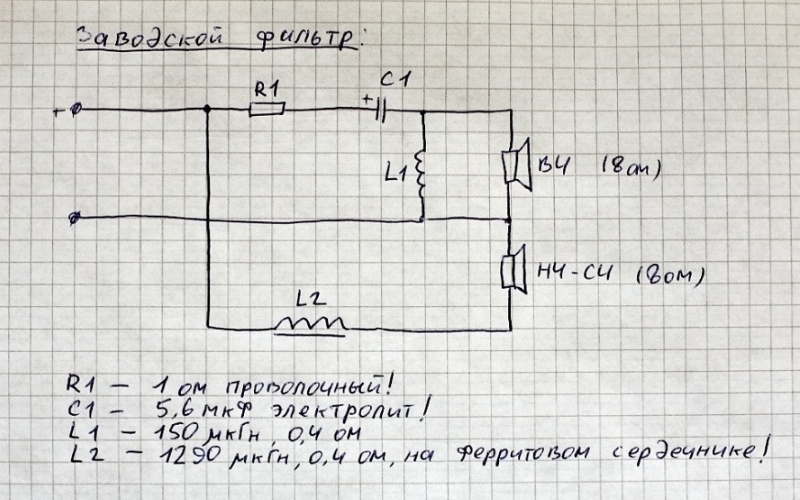 Заводской фильтр:
C1
R1
+
+
L1
ВЧ (8ом)
НЧ-СЧ (8ом)
L2
R1 — 1 ом проволочный!
C1 — 5,6 мкФ электролит!
L1 — 150 мкГн, 0,4 ом
L2 — 1290 мкГн, 0,4 ом, на ферритовом сердечнике!